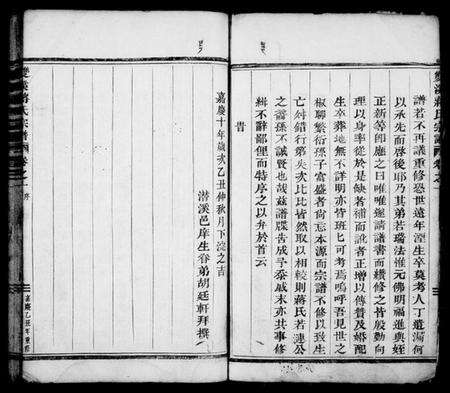 譜若不再議重修恐世遠年湮生卒莫考人丁遺漏何
以承先而啓後耶乃其弟若瑞法惟元佛明福進與姪
正新等卽應之曰唯唯遂請譜書而續修之皆殷勤向
理以身率從於是缺者補而訛者正增以傳贊及婚配
生卒葬地無不詳明亦皆班匕可考焉嗚呼吾見世之
椒聊繁衍孫子富盛者尙忘本源而宗譜不修以致生
亡舛錯行第失次比比皆然取以相較則蔣氏若連公
之裔孫不誠賢也哉兹譜牒告成予忝戚末亦其事修
緝不辭鄙俚而特序之以弁於首云
旹
嘉慶十年歲次乙丑仲秋月下浣之吉
潛溪邑庠生眷弟胡廷軒拜撰
嘉慶乙丑年重修